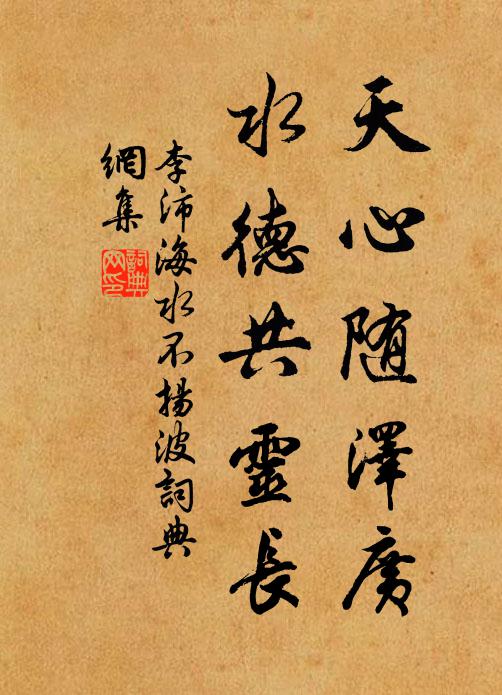 天心随澤廣
水德共靈長
李沛海水不揚波詞典
網集
詞典
网印